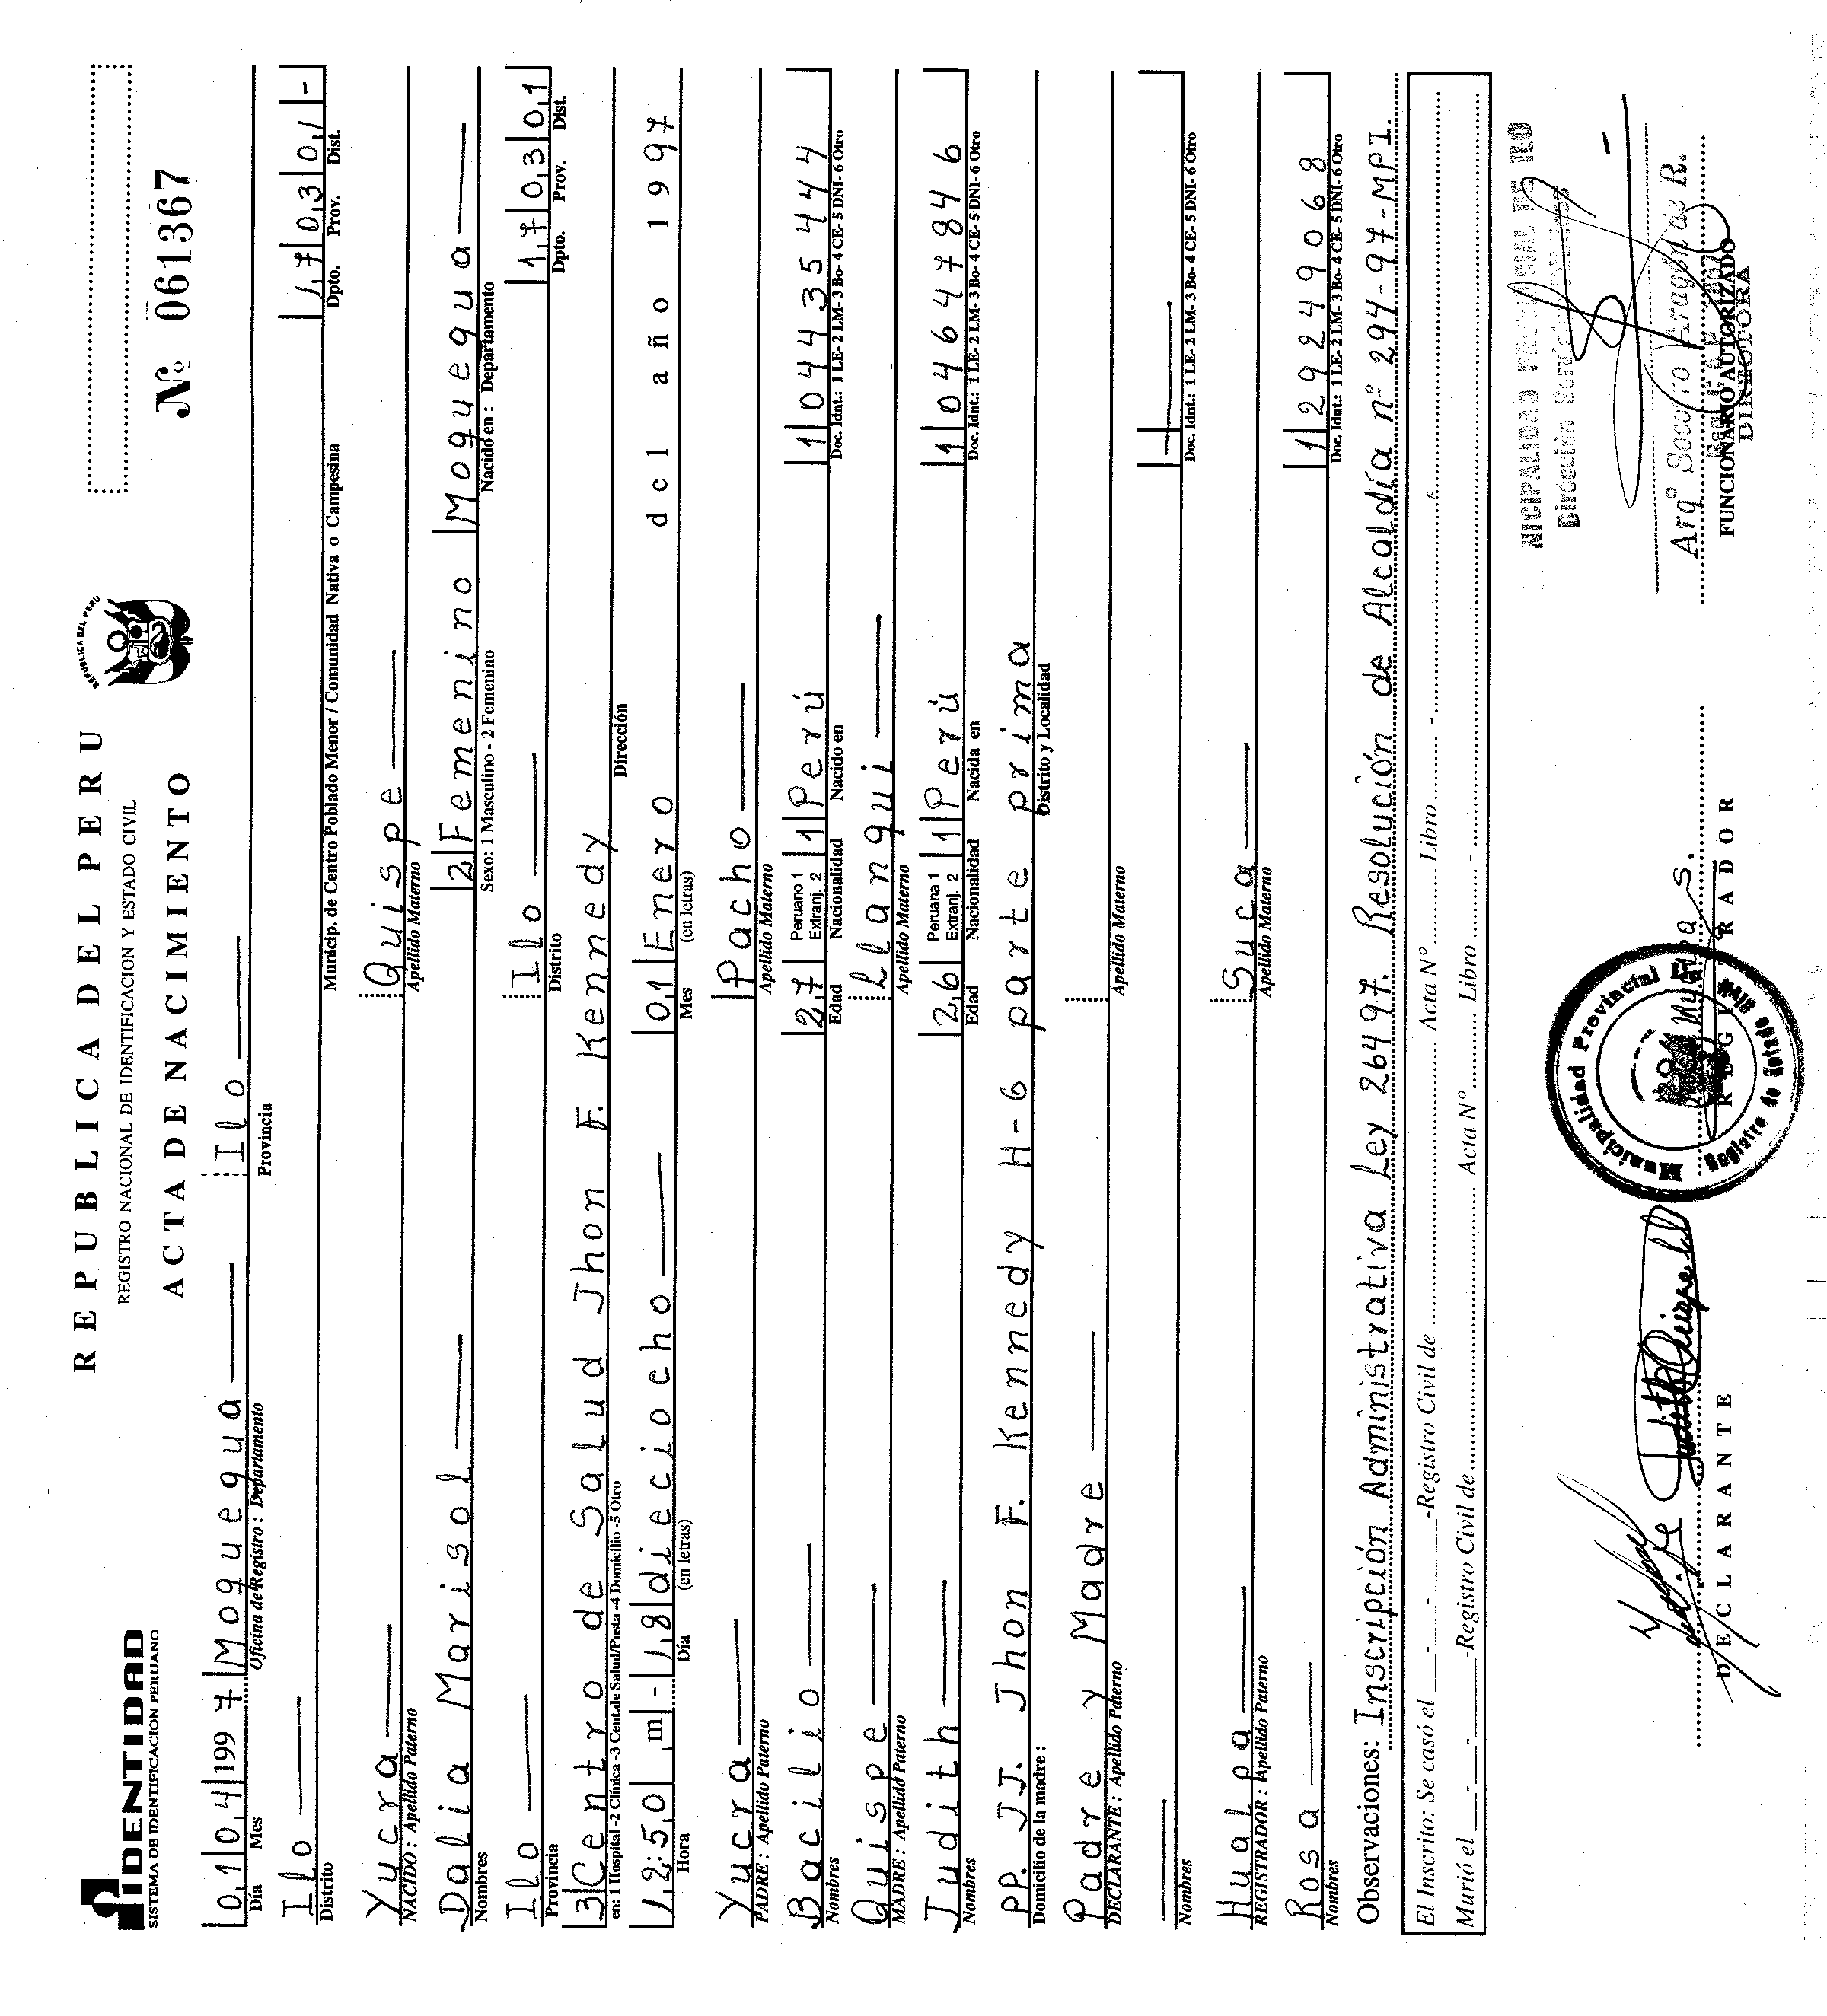 IDENTIDAD
SISTEMA DE IDENTIFICACION PERUANO
REPUBLICA DEL PERU
REGISTRO NACIONAL DE IDENTIFICACION Y ESTADO CIVIL
ACTA DE NACIMIENTO
REPUBLICA DEL PERU
Nº 061367
0,1 0,4 199 7 Moquegua Ilo
Día Mes Oficina de Registro : Departamento Provincia
Ilo 1,7 0,3 0,1 -
Distrito Municip. de Centro Poblado Menor / Comunidad Nativa o Campesina Dpto. Prov. Dist.
Yucra Quispe
NACIDO : Apellido Paterno Apellido Materno
Dalia Marisol 2 Femenino Moquegua
Nombres Sexo: 1 Masculino - 2 Femenino Nacido en : Departamento
Ilo Ilo 1,7 0,3 0,1
Provincia Distrito Dpto. Prov. Dist.
3 Centro de Salud Jhon F. Kennedy
en: 1 Hospital -2 Clínica -3 Cent.de Salud/Posta -4 Domicilio -5 Otro Dirección
1,2:5,0 m - 1,8 dieciocho 0,1 Enero del año 1997
Hora Día (en letras) Mes (en letras)
Yucra Pacho
PADRE : Apellido Paterno Apellido Materno
Bacilio 2,7 Peruano 1 Extranj. 2 1 Perú 1 04435444
Nombres Edad Nacionalidad Nacido en Doc. Idnt.: 1 LE- 2 LM- 3 Bo- 4 CE- 5 DNI- 6 Otro
Quispe Llanqui
MADRE : Apellido Paterno Apellido Materno
Judith 2,6 Peruana 1 Extranj. 2 1 Perú 1 04647846
Nombres Edad Nacionalidad Nacida en Doc. Idnt.: 1 LE- 2 LM- 3 Bo- 4 CE- 5 DNI- 6 Otro
PP. JJ. Jhon F. Kennedy H-6 parte prima
Domicilio de la madre : Distrito y Localidad
Padre y Madre
DECLARANTE : Apellido Paterno Apellido Materno
Nombres Doc. Idnt.: 1 LE- 2 LM- 3 Bo- 4 CE- 5 DNI- 6 Otro
Hualpa Suca
REGISTRADOR : Apellido Paterno Apellido Materno
Rosa 1 29249068
Nombres Doc. Idnt.: 1 LE- 2 LM- 3 Bo- 4 CE- 5 DNI- 6 Otro
Observaciones: Inscripción Administrativa Ley 26497. Resolución de Alcaldía nº 294-97-MPI.
El Inscrito: Se casó el - - -Registro Civil de Acta N° Libro -
Murió el - - -Registro Civil de Acta N° Libro -
NICIPALIDAD PROVINCIAL DE ILO
Dirección
Municipalidad Provincial
Registro de Estado Civil
Judith Quispe
Arqº Socorro Aragón de R.
DECLARANTE REGISTRADOR FUNCIONARIO AUTORIZADO
DIRECTORA